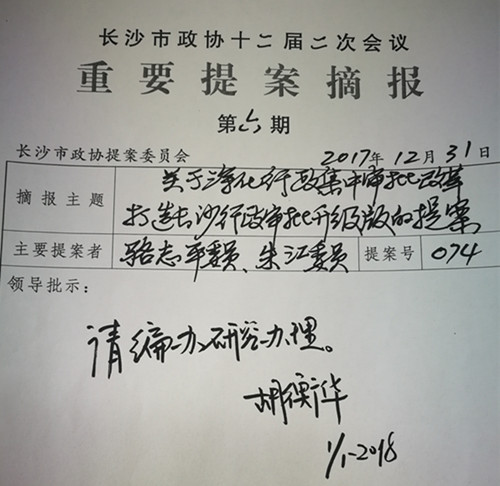 长沙市政协十二届二次会议
重要提案摘报
第六期
长沙市政协提案委员会 2017年12月31日
摘报主题 关于深化行政集中审批改革
打造长沙行政审批升级版的提案
主要提案者 骆志平委员、朱江委员 提案号 074
领导批示：
请编办研究办理。
胡衡华
1/1-2018